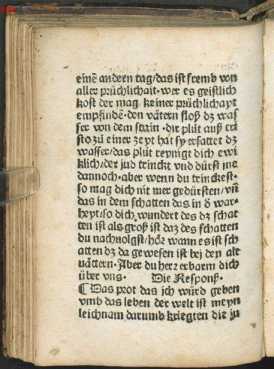 einē andern tag/das ist fremb von
aller prüchlichait·wer es geistlich
kost der mag keiner prüchlichayt
empfindē·den vätern floß dz was
ser von dem stain·dir plůt auß cri
sto zů einer zeyt hat sy ersattet dz
wasser/das plůt reynigt dich ewi
klich/der jud trinckt und dürst ine
dannoch/aber wenn du trinckest·
so mag dich nit mer gedürsten/vñ
das in dem schatten das in ď war
heyt/so dich wundert des dz schat
ten ist als groß ist daz des schatten
du nachuolgst/hör wann es ist sch
atten dz da gewesen ist bey den alt
uättern·Aber du herr erbarm dich
über vns· Die Respons·
Das prot das ich würd geben
vmb das leben der welt ist meyn
leichnam darumb kriegten die ju